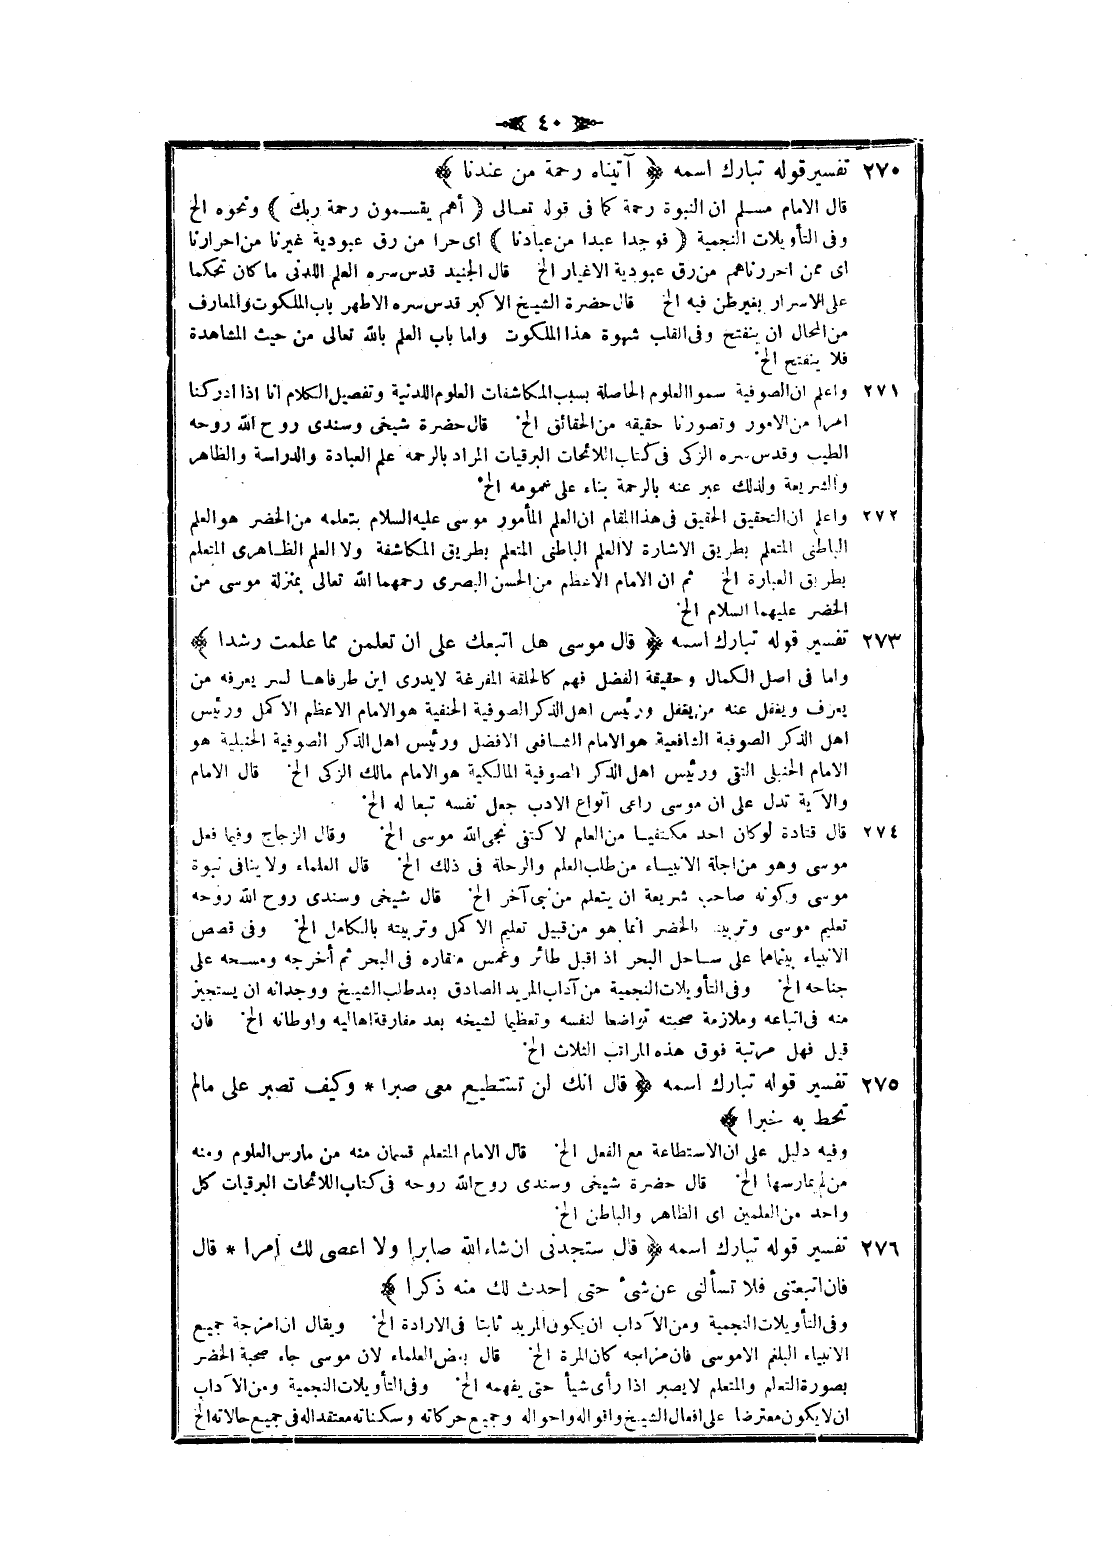 ٤٠
٢٧٠ تفسير قوله تبارك اسمه ﴿ آتيناه رحمة من عندنا ﴾
قال الامام مسلم ان النبوة رحمة كما فى قوله تعالى ( أهم يقسمون رحمة ربك ) ونحوه الخ
وفى التأويلات النجمية ( فوجدا عبدا من عبادنا ) اى حرا من رق عبودية غيرنا من احرارنا
اى ممن احررناهم من رق عبودية الاغيار الخ قال الجنيد قدس سره العلم اللدنى ما كان تحكما
على الاسرار بغير ظن فيه الخ قال حضرة الشيخ الاكبر قدس سره الاطهر باب الملكوت والمعارف
من المحال ان ينفتح وفى القلب شهوة هذا الملكوت واما باب العلم بالله تعالى من حيث المشاهدة
فلا ينفتح الخ
٢٧١ واعلم ان الصوفية سموا العلوم الحاصلة بسبب المكاشفات العلوم اللدنية وتفصيل الكلام انا اذا ادركنا
امرا من الامور وتصورنا حقيقه من الحقائق الخ قال حضرة شيخى وسندى روح الله روحه
الطيب وقدس سره الزكى فى كتاب اللائحات البرقيات المراد بالرحمه علم العبادة والدراسة والظاهر
والشريعة ولذلك عبر عنه بالرحمة بناء على عمومه الخ
٢٧٢ واعلم ان التحقيق الحقيق فى هذا المقام ان العلم المأمور موسى عليه السلام بتعلمه من الخضر هو العلم
الباطنى المتعلم بطريق الاشارة لا العلم الباطنى المتعلم بطريق المكاشفة ولا العلم الظاهرى المتعلم
بطريق العبارة الخ ثم ان الامام الاعظم من الحسن البصرى رحمهما الله تعالى بمنزلة موسى من
الخضر عليهما السلام الخ
٢٧٣ تفسير قوله تبارك اسمه ﴿ قال موسى هل اتبعك على ان تعلمن مما علمت رشدا ﴾
واما فى اصل الكمال وحقيقة الفضل فهم كالحلقة المفرغة لايدرى اين طرفاها لسر يعرفه من
يعرف ويغفل عنه من يغفل ورئيس اهل الذكر الصوفية الحنفية هو الامام الاعظم الاكمل ورئيس
اهل الذكر الصوفية الشافعية هو الامام الشافعى الافضل ورئيس اهل الذكر الصوفية الحنبلية هو
الامام الحنبلى التقى ورئيس اهل الذكر الصوفية المالكية هو الامام مالك الزكى الخ قال الامام
والآية تدل على ان موسى راعى أنواع الادب جعل نفسه تبعا له الخ
٢٧٤ قال قتادة لو كان احد مكتفيا من العلم لاكتفى نجى الله موسى الخ وقال الزجاج وفيما فعل
موسى وهو من اجلة الانبياء من طلب العلم والرحلة فى ذلك الخ قال العلماء ولا ينافى نبوة
موسى وكونه صاحب شريعة ان يتعلم من نبى آخر الخ قال شيخى وسندى روح الله روحه
تعليم موسى وتربيته بالخضر انما هو من قبيل تعليم الاكمل وتربيته بالكامل الخ وفى قصص
الانبياء بينماهما على ساحل البحر اذ اقبل طائر وغمس منقاره فى البحر ثم أخرجه ومسحه على
جناحه الخ وفى التأويلات النجمية من آداب المريد الصادق بعد طلب الشيخ ووجدانه ان يستجيز
منه فى اتباعه وملازمة صحبته تواضعا لنفسه وتعظيما لشيخه بعد مفارقة اهاليه واوطانه الخ فان
قيل فهل مرتبة فوق هذه المراتب الثلاث الخ
٢٧٥ تفسير قوله تبارك اسمه ﴿ قال انك لن تستطيع معى صبرا * وكيف تصبر على مالم
تحط به خبرا ﴾
وفيه دليل على ان الاستطاعة مع الفعل الخ قال الامام المتعلم قسمان منه من مارس العلوم ومنه
من لم يمارسها الخ قال حضرة شيخى وسندى روح الله روحه فى كتاب اللائحات البرقيات كل
واحد من العلمين اى الظاهر والباطن الخ
٢٧٦ تفسير قوله تبارك اسمه ﴿ قال ستجدنى ان شاء الله صابرا ولا اعصى لك إمرا * قال
فان اتبعتنى فلا تسألنى عن شئ حتى إحدث لك منه ذكرا ﴾
وفى التأويلات النجمية ومن الآداب ان يكون المريد ثابتا فى الارادة الخ ويقال ان امزجة جميع
الانبياء البلغم الا موسى فان مزاجه كان المرة الخ قال بعض العلماء لان موسى جاء صحبة الخضر
بصورة التعلم والمتعلم لايصبر اذا رأى شيأ حتى يفهمه الخ وفى التأويلات النجمية ومن الآداب
ان لا يكون معترضا على افعال الشيخ واقواله واحواله وجميع حركاته وسكناته معتقدا له فى جميع حالاته الخ